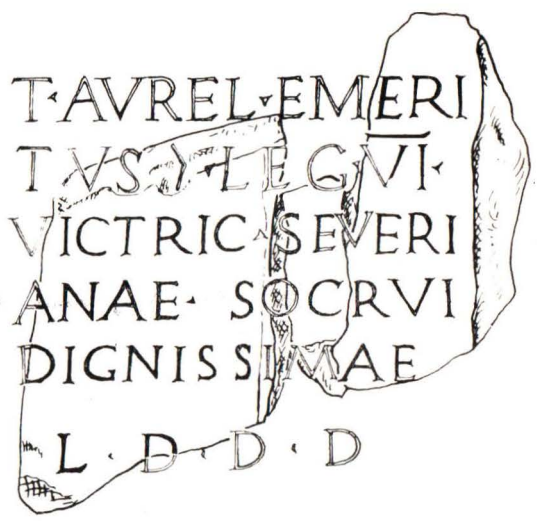 T·AVREL·EMERI
TVS Ɔ LEG VI·
VICTRIC·SEVERI
ANAE· SOCRVI
DIGNISSIMAE
L·D·D·D